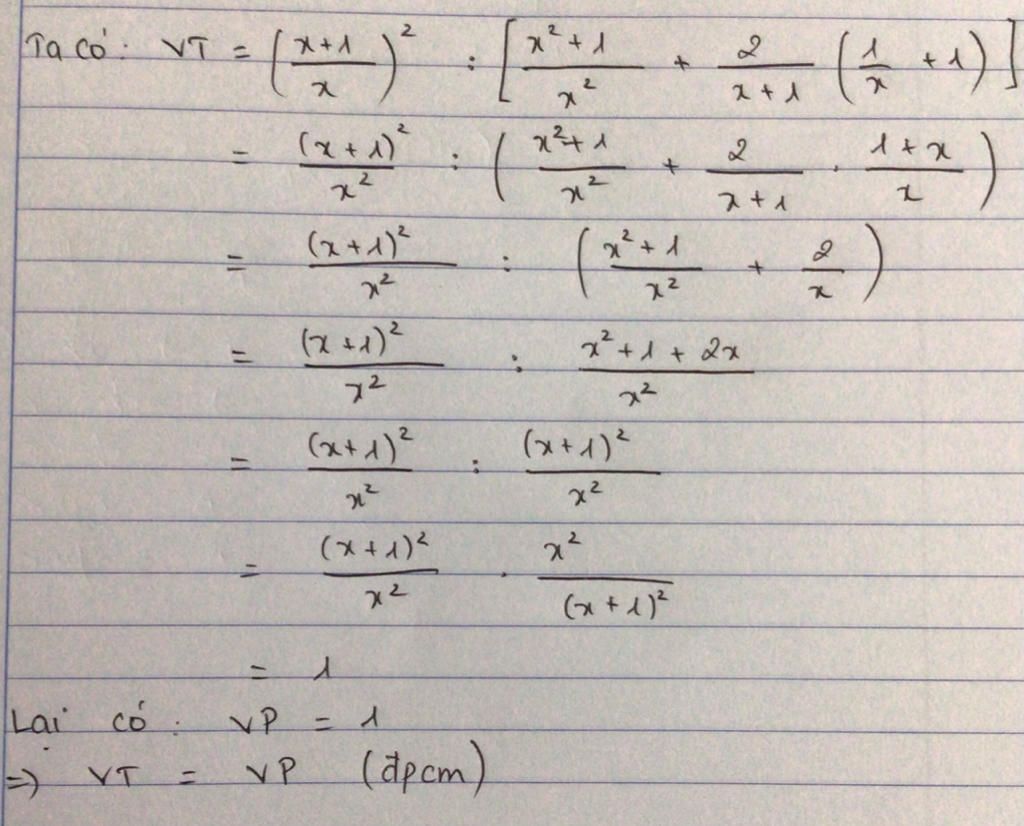 Ta có: VT = ((x+1)/x)² : [(x²+1)/x² + 2/(x+1) (1/x + 1)]
= (x+1)²/x² : ((x²+1)/x² + 2/(x+1) . (1+x)/x)
= (x+1)²/x² : ((x²+1)/x² + 2/x)
= (x+1)²/x² : (x²+1+2x)/x²
= (x+1)²/x² : (x+1)²/x²
= (x+1)²/x² . x²/(x+1)²
= 1
Lại có: VP = 1
=> VT = VP (đpcm)